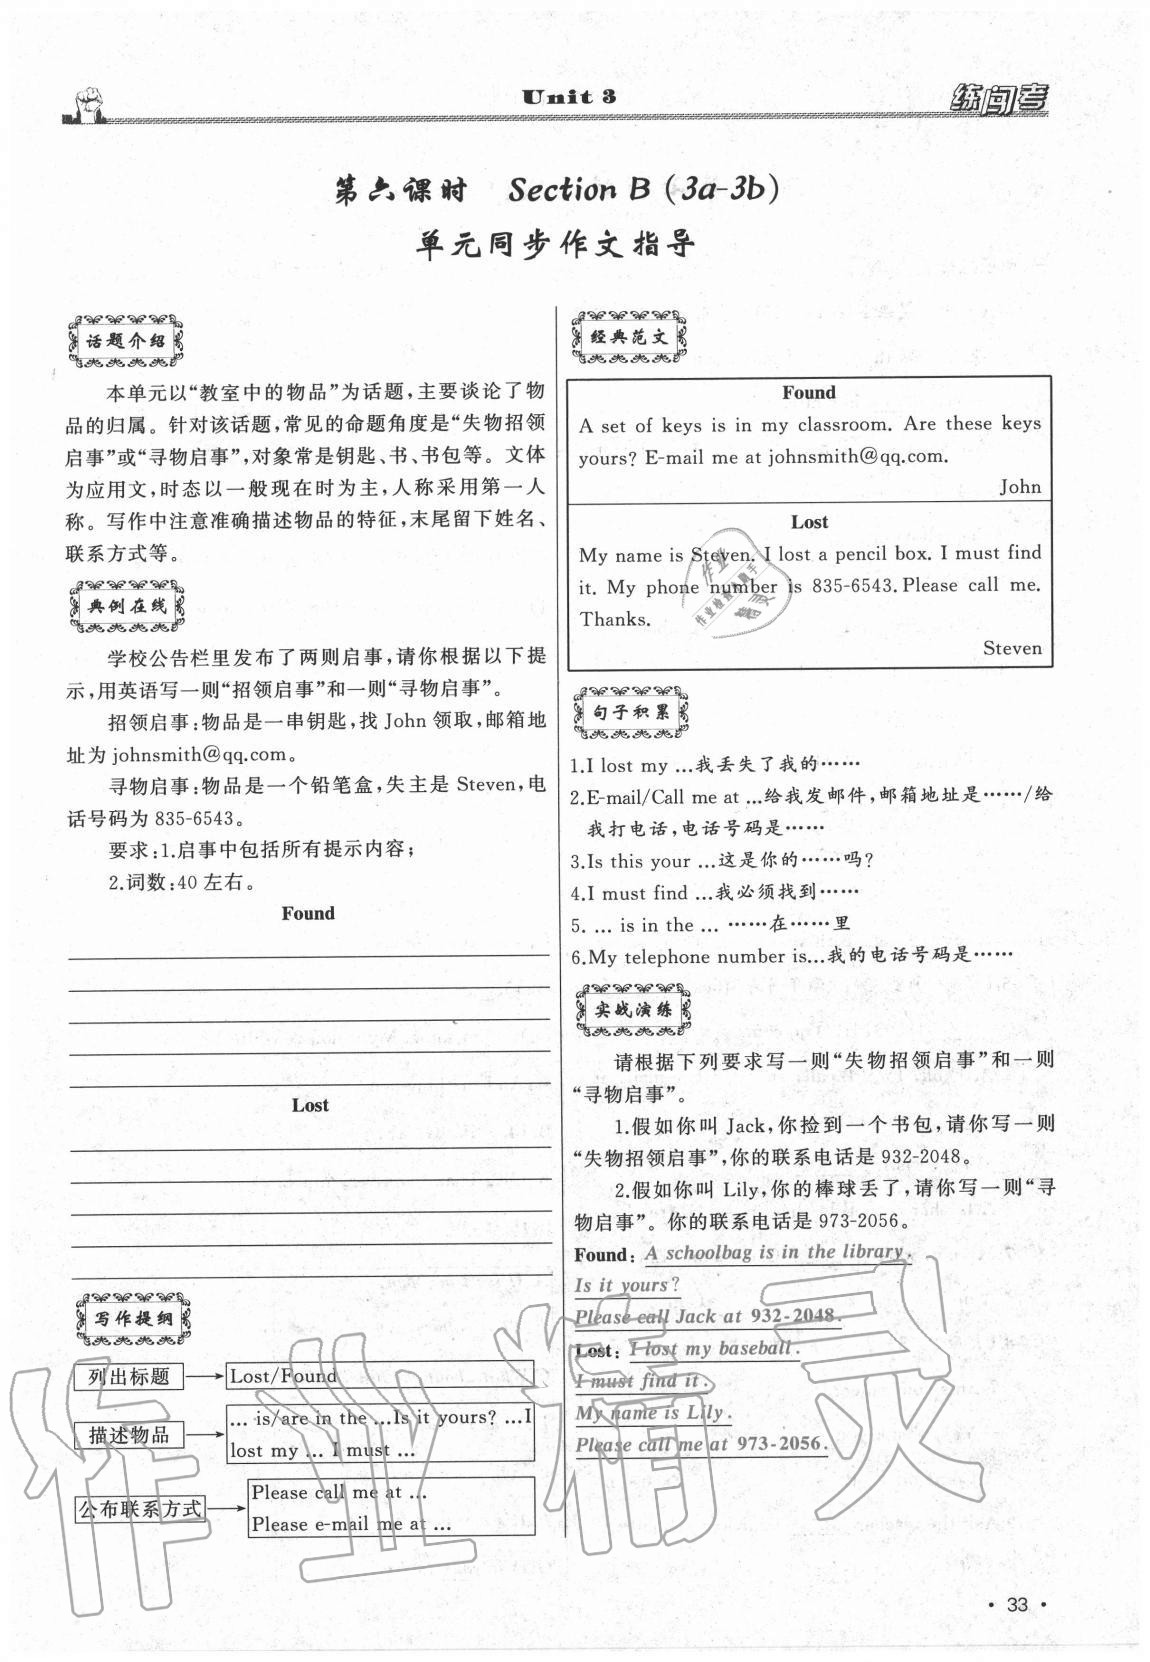 Unit 3
练闯考
第六课时 Section B (3a-3b)
单元同步作文指导
话题介绍
本单元以“教室中的物品”为话题,主要谈论了物
品的归属。针对该话题,常见的命题角度是“失物招领
启事”或“寻物启事”,对象常是钥匙、书、书包等。文体
为应用文,时态以一般现在时为主,人称采用第一人
称。写作中注意准确描述物品的特征,末尾留下姓名、
联系方式等。
典例在线
学校公告栏里发布了两则启事,请你根据以下提
示,用英语写一则“招领启事”和一则“寻物启事”。
招领启事:物品是一串钥匙,找 John 领取,邮箱地
址为 johnsmith@qq.com。
寻物启事:物品是一个铅笔盒,失主是 Steven,电
话号码为 835-6543。
要求:1.启事中包括所有提示内容;
2.词数:40 左右。
Found
Lost
写作提纲
列出标题
Lost/Found
描述物品
... is/are in the ...Is it yours? ...I
lost my ... I must ...
公布联系方式
Please call me at ...
Please e-mail me at ...
经典范文
Found
A set of keys is in my classroom. Are these keys
yours? E-mail me at johnsmith@qq.com.
John
Lost
My name is Steven. I lost a pencil box. I must find
it. My phone number is 835-6543. Please call me.
Thanks.
Steven
句子积累
1.I lost my ...我丢失了我的……
2.E-mail/Call me at ...给我发邮件,邮箱地址是……/给
我打电话,电话号码是……
3.Is this your ...这是你的……吗?
4.I must find ...我必须找到……
5. ... is in the ... ……在……里
6.My telephone number is...我的电话号码是……
实战演练
请根据下列要求写一则“失物招领启事”和一则
“寻物启事”。
1.假如你叫 Jack,你捡到一个书包,请你写一则
“失物招领启事”,你的联系电话是 932-2048。
2.假如你叫 Lily,你的棒球丢了,请你写一则“寻
物启事”。你的联系电话是 973-2056。
Found: A schoolbag is in the library.
Is it yours?
Please call Jack at 932-2048.
Lost: I lost my baseball.
I must find it.
My name is Lily.
Please call me at 973-2056.
作业精灵
· 33 ·